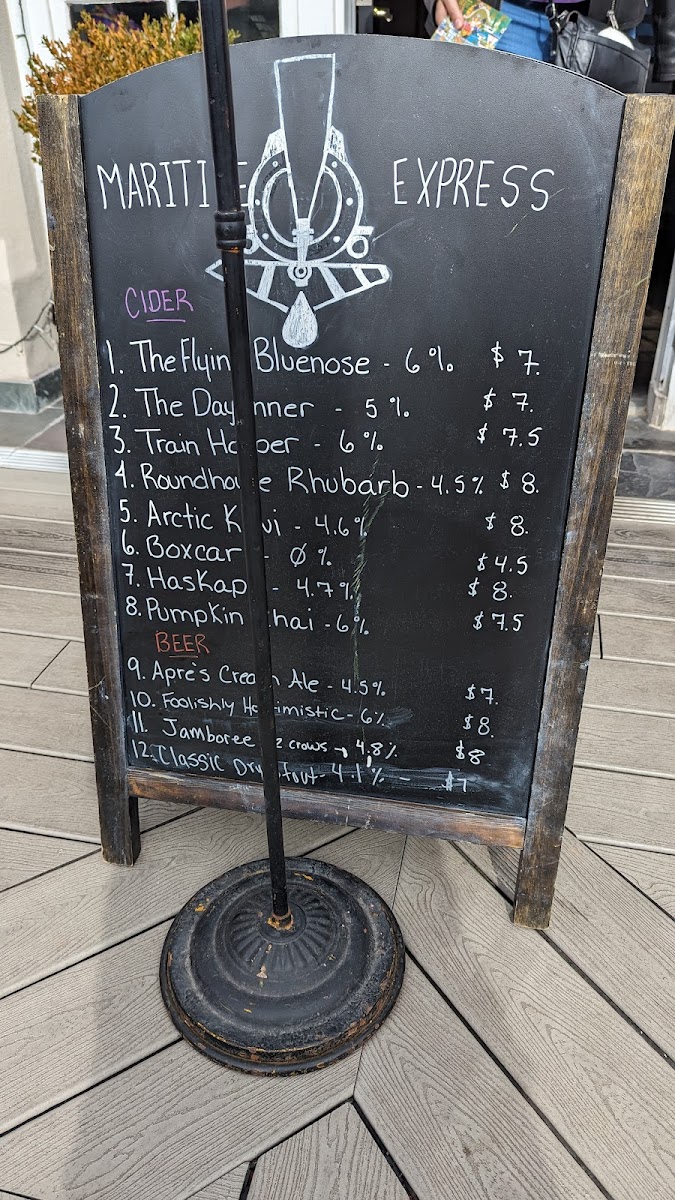 MARITI E EXPRESS
CIDER
1. The Flyin Bluenose - 6% $7.
2. The Day nner - 5% $7.
3. Train Ho per - 6% $7.5
4. Roundhou e Rhubarb - 4.5% $8.
5. Arctic K wi - 4.6% $8.
6. Boxcar - Ø% $4.5
7. Haskap - 4.7% $8.
8. Pumpkin hai - 6% $7.5
BEER
9. Apre's Crea Ale - 4.5% $7.
10. Foolishly Ho imistic - 6% $8.
11. Jamboree 2 crows → 4.8% $8
12. Classic Dry tout - 4.1% - $7